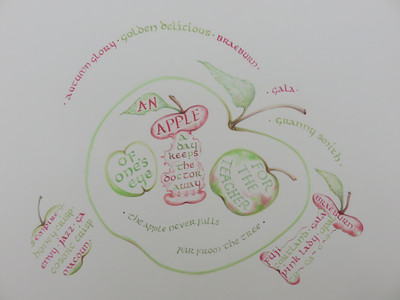 · AUTUMN GLORY · GOLDEN DELICIOUS · BRAEBURN ·
· GALA ·
GRANNY SMITH ·
AN
APPLE
A
DAY
KEEPS
THE
DOCTOR
AWAY
OF
ONE'S
EYE
FOR
THE
TEACHER
· THE APPLE NEVER FALLS
FAR FROM THE TREE ·
HONEY CRISP
ENVY · JAZZ ·
COSMIC CRISP
MACOUN
BRAEBURN
FUJI
CORTLAND · GALA
PINK LADY